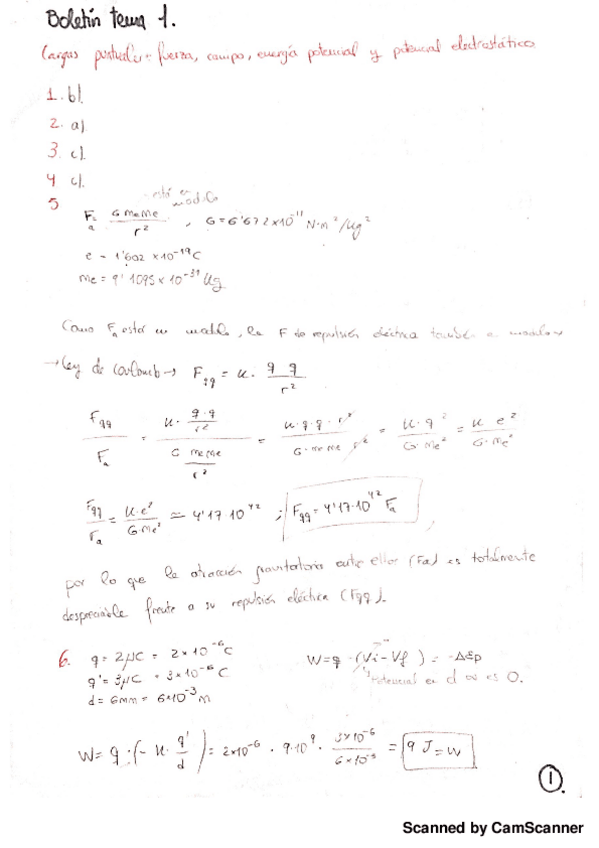 Boletín tema 1.
Cargas puntuales: fuerza, campo, energía potencial y potencial electrostático
1. b).
2. a)
3. c).
4 c).
5
está en modulo
Fa G me me / r² , G = 6'672 x 10⁻¹¹ N·m²/Kg²
e - 1'602 x 10⁻¹⁹ C
me = 9'1095 x 10⁻³¹ Kg
Como Fa está en modulo, la F de repulsión eléctrica también en modulo
→ Ley de Coulomb → Fqq = K · q q / r²
Fqq / Fa = K · q·q / r² / G me me / r² = K·q·q·r² / G·me·me·r² = K·q² / G·me² = K e² / G·me²
Fqq / Fa = K·e² / G·me² ≃ 4'17·10⁴² ; Fqq = 4'17·10⁴² Fa
por lo que la atracción gravitatoria entre ellos (Fa) es totalmente
despreciable frente a su repulsión eléctrica (Fqq).
6. q = 2μC = 2x10⁻⁶ C W = q · (Vi - Vf) = -ΔEp
q' = 3μC = 3x10⁻⁶ C Potencial en d ∞ es 0.
d = 6mm = 6·10⁻³ m
W = q · (- K · q' / d) = 2x10⁻⁶ · 9·10⁹ · 3x10⁻⁶ / 6x10⁻³ = 9 J = W
1
Scanned by CamScanner